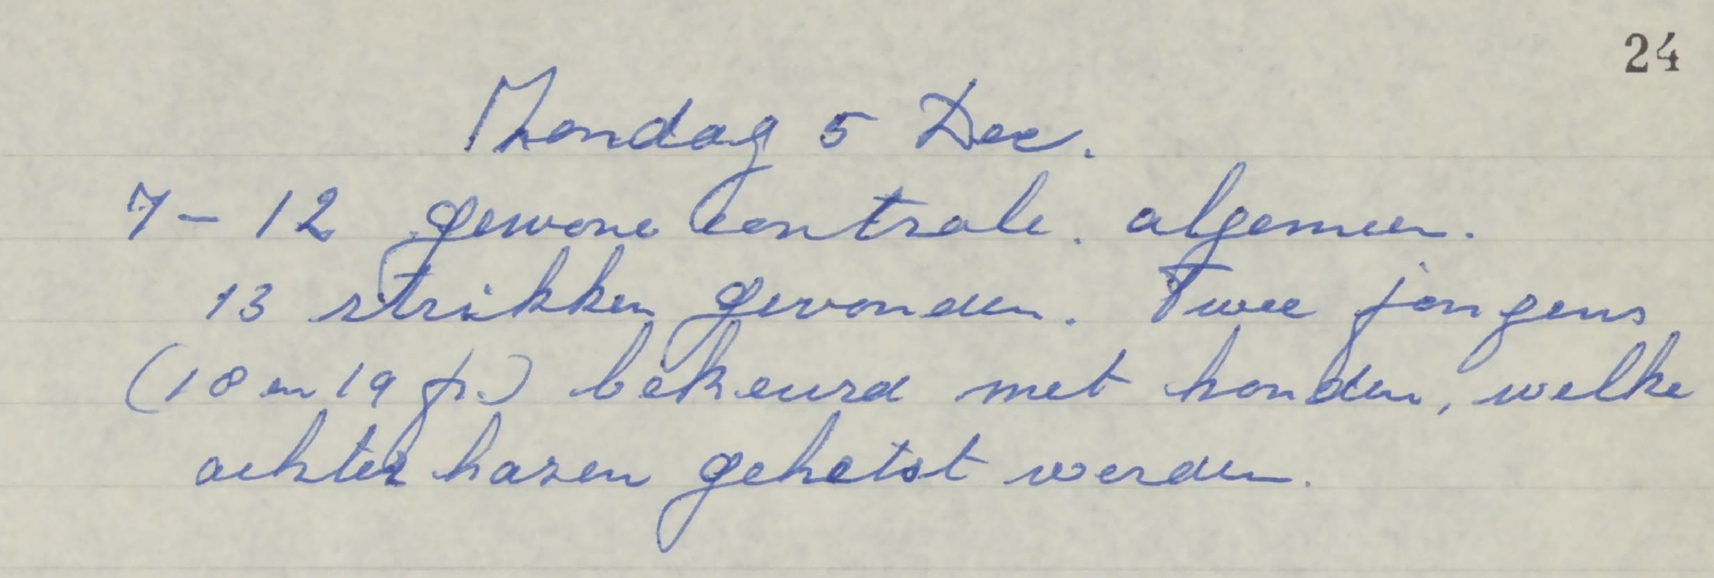 24
Mondag 5 Dec.
7 - 12 gewone controle. algemeen.
13 strikken gevonden. Twee jongens
(18 en 19 jr.) bekeurd met honden, welke
achter hazen gehetst werden.